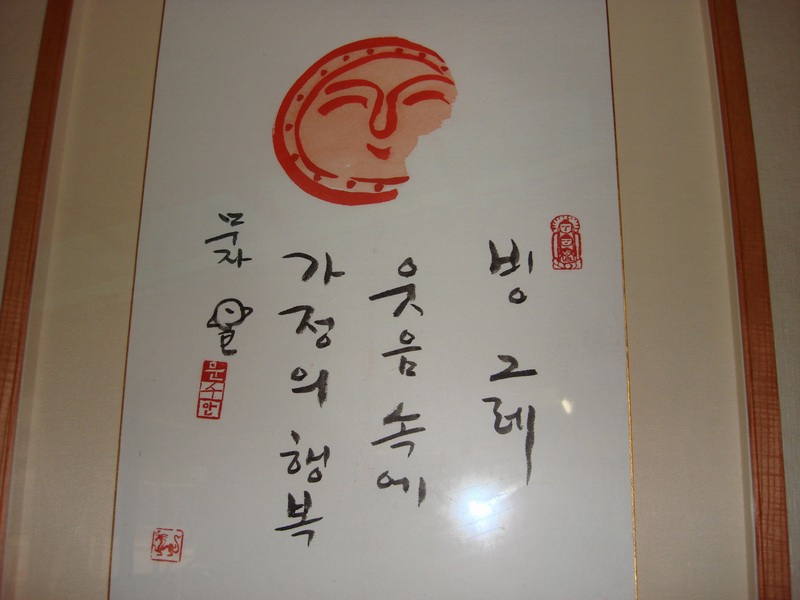 빙그레
웃음 속에
가정의 행복
무자
문수만